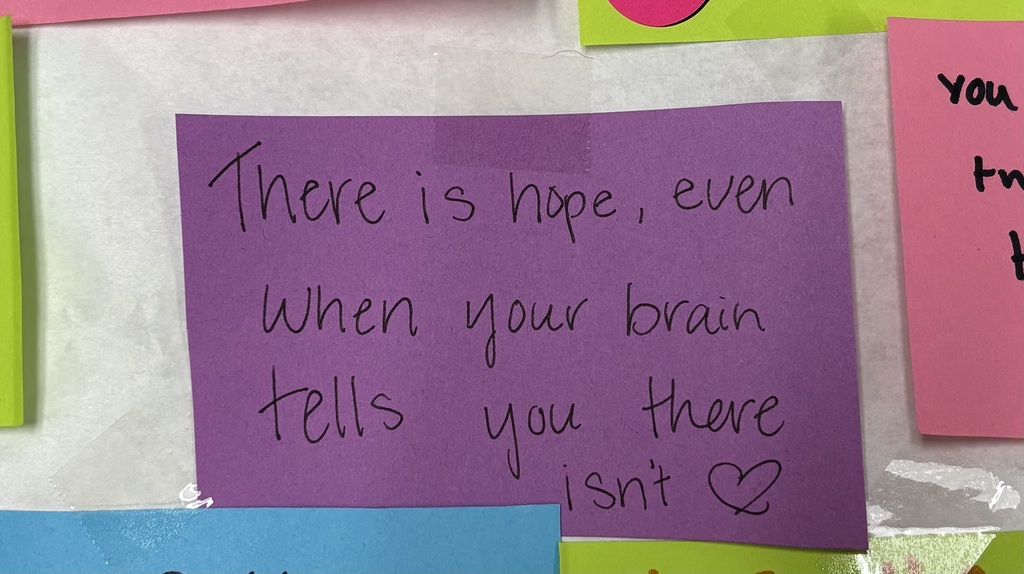 There is hope, even
when your brain
tells you there
isn't ♡
you